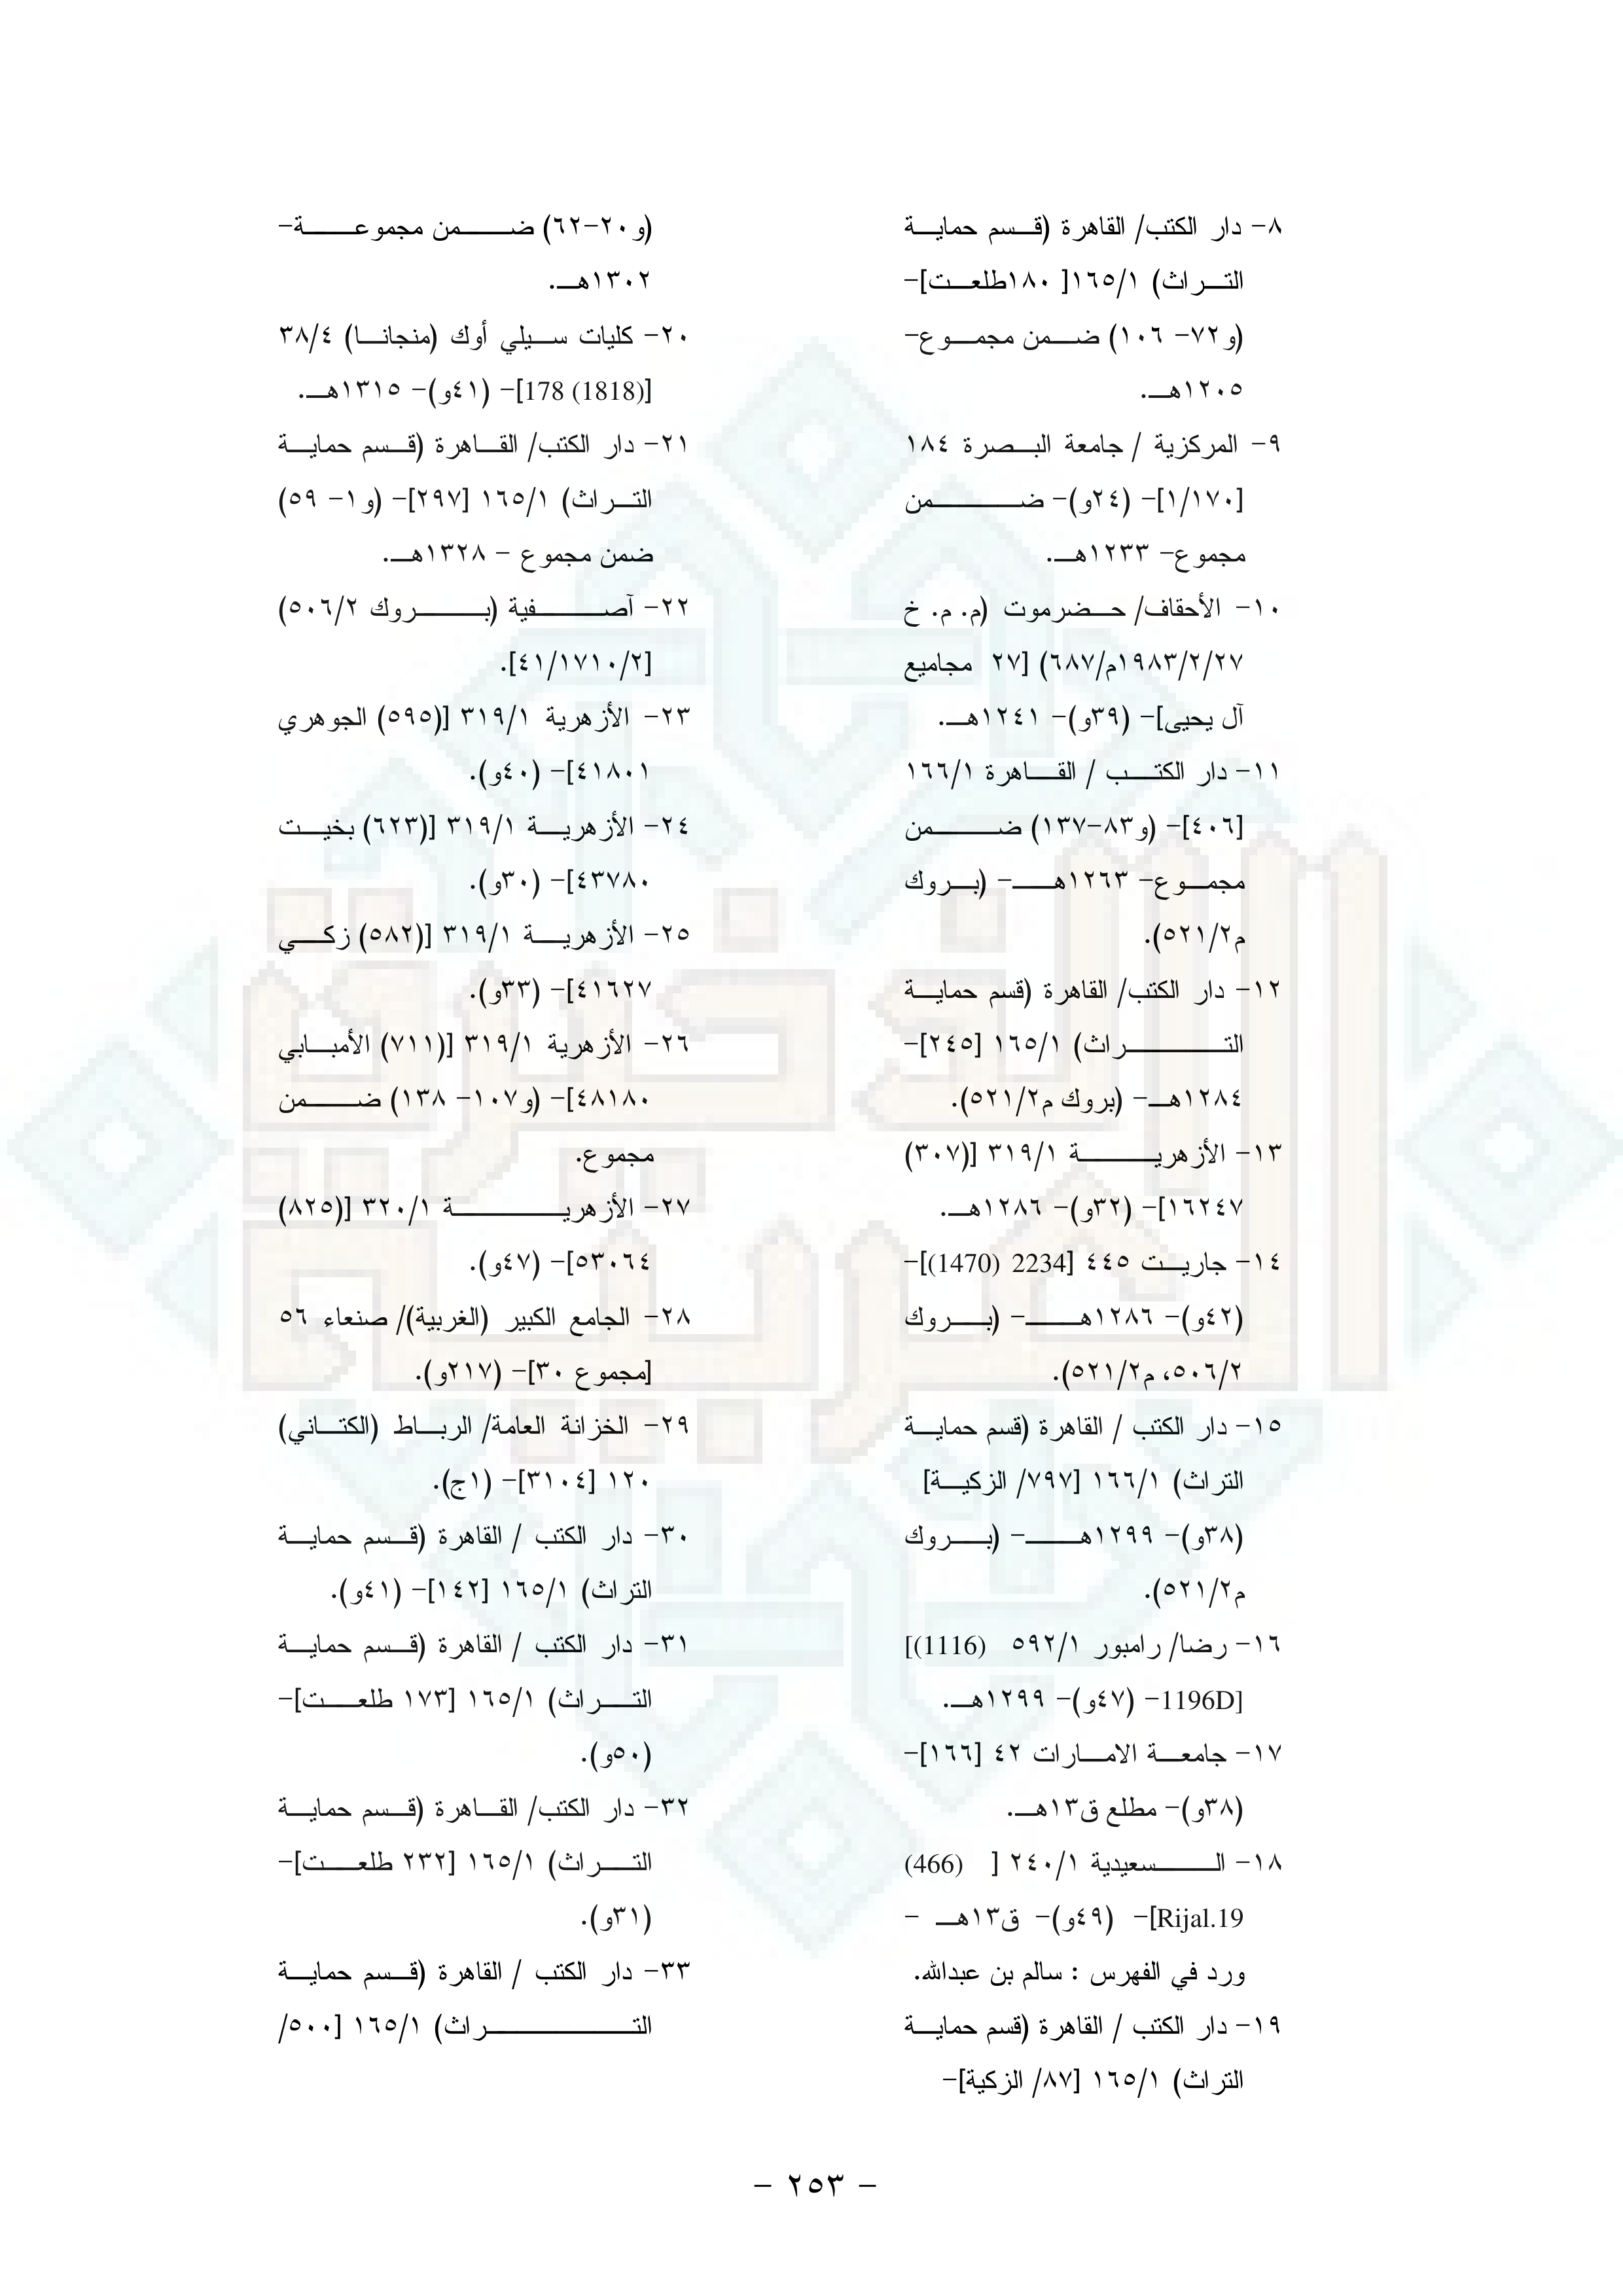 ٨- دار الكتب/ القاهرة (قسم حماية
التراث) ١٦٥/١[ ١٨٠طلعت]-
(و٧٢- ١٠٦) ضمن مجموع-
١٢٠٥هـ.
٩- المركزية / جامعة البصرة ١٨٤
[١/١٧٠]- (٢٤و)- ضمن
مجموع- ١٢٣٣هـ.
١٠- الأحقاف/ حضرموت (م. م. خ
١٩٨٣/٢/٢٧م/٦٨٧) [٢٧ مجاميع
آل يحيى]- (٣٩و)- ١٢٤١هـ.
١١- دار الكتب / القاهرة ١٦٦/١
[٤٠٦]- (و٨٣-١٣٧) ضمن
مجموع- ١٢٦٣هـ- (بروك
م٥٢١/٢).
١٢- دار الكتب/ القاهرة (قسم حماية
التراث) ١٦٥/١ [٢٤٥]-
١٢٨٤هـ- (بروك م٥٢١/٢).
١٣- الأزهرية ٣١٩/١ [(٣٠٧)
١٦٢٤٧]- (٣٢و)- ١٢٨٦هـ.
١٤- جاريت ٤٤٥ [2234 (1470)]-
(٤٢و)- ١٢٨٦هـ- (بروك
٥٠٦/٢، م٥٢١/٢).
١٥- دار الكتب / القاهرة (قسم حماية
التراث) ١٦٦/١ [٧٩٧/ الزكية]
(٣٨و)- ١٢٩٩هـ- (بروك
م٥٢١/٢).
١٦- رضا/ رامبور ٥٩٢/١ [(1116)
1196D]- (٤٧و)- ١٢٩٩هـ.
١٧- جامعة الامارات ٤٢ [١٦٦]-
(٣٨و)- مطلع ق١٣هـ.
١٨- السعيدية ٢٤٠/١ [ (466)
Rijal.19]- (٤٩و)- ق١٣هـ -
ورد في الفهرس : سالم بن عبدالله.
١٩- دار الكتب / القاهرة (قسم حماية
التراث) ١٦٥/١ [٨٧/ الزكية]-
(و٢٠-٦٢) ضمن مجموعة-
١٣٠٢هـ.
٢٠- كليات سيلي أوك (منجانا) ٣٨/٤
[178 (1818)]- (٤١و)- ١٣١٥هـ.
٢١- دار الكتب/ القاهرة (قسم حماية
التراث) ١٦٥/١ [٢٩٧]- (و١- ٥٩)
ضمن مجموع - ١٣٢٨هـ.
٢٢- آصفية (بروك ٥٠٦/٢)
[٤١/١٧١٠/٢].
٢٣- الأزهرية ٣١٩/١ [(٥٩٥) الجوهري
٤١٨٠١]- (٤٠و).
٢٤- الأزهرية ٣١٩/١ [(٦٢٣) بخيت
٤٣٧٨٠]- (٣٠و).
٢٥- الأزهرية ٣١٩/١ [(٥٨٢) زكي
٤١٦٢٧]- (٣٣و).
٢٦- الأزهرية ٣١٩/١ [(٧١١) الأمبابي
٤٨١٨٠]- (و١٠٧- ١٣٨) ضمن
مجموع.
٢٧- الأزهرية ٣٢٠/١ [(٨٢٥)
٥٣٠٦٤]- (٤٧و).
٢٨- الجامع الكبير (الغربية)/ صنعاء ٥٦
[مجموع ٣٠]- (٢١٧و).
٢٩- الخزانة العامة/ الرباط (الكتاني)
١٢٠ [٣١٠٤]- (١ج).
٣٠- دار الكتب / القاهرة (قسم حماية
التراث) ١٦٥/١ [١٤٢]- (٤١و).
٣١- دار الكتب / القاهرة (قسم حماية
التراث) ١٦٥/١ [١٧٣ طلعت]-
(٥٠و).
٣٢- دار الكتب/ القاهرة (قسم حماية
التراث) ١٦٥/١ [٢٣٢ طلعت]-
(٣١و).
٣٣- دار الكتب / القاهرة (قسم حماية
التراث) ١٦٥/١ [٥٠٠/
- ٢٥٣ -